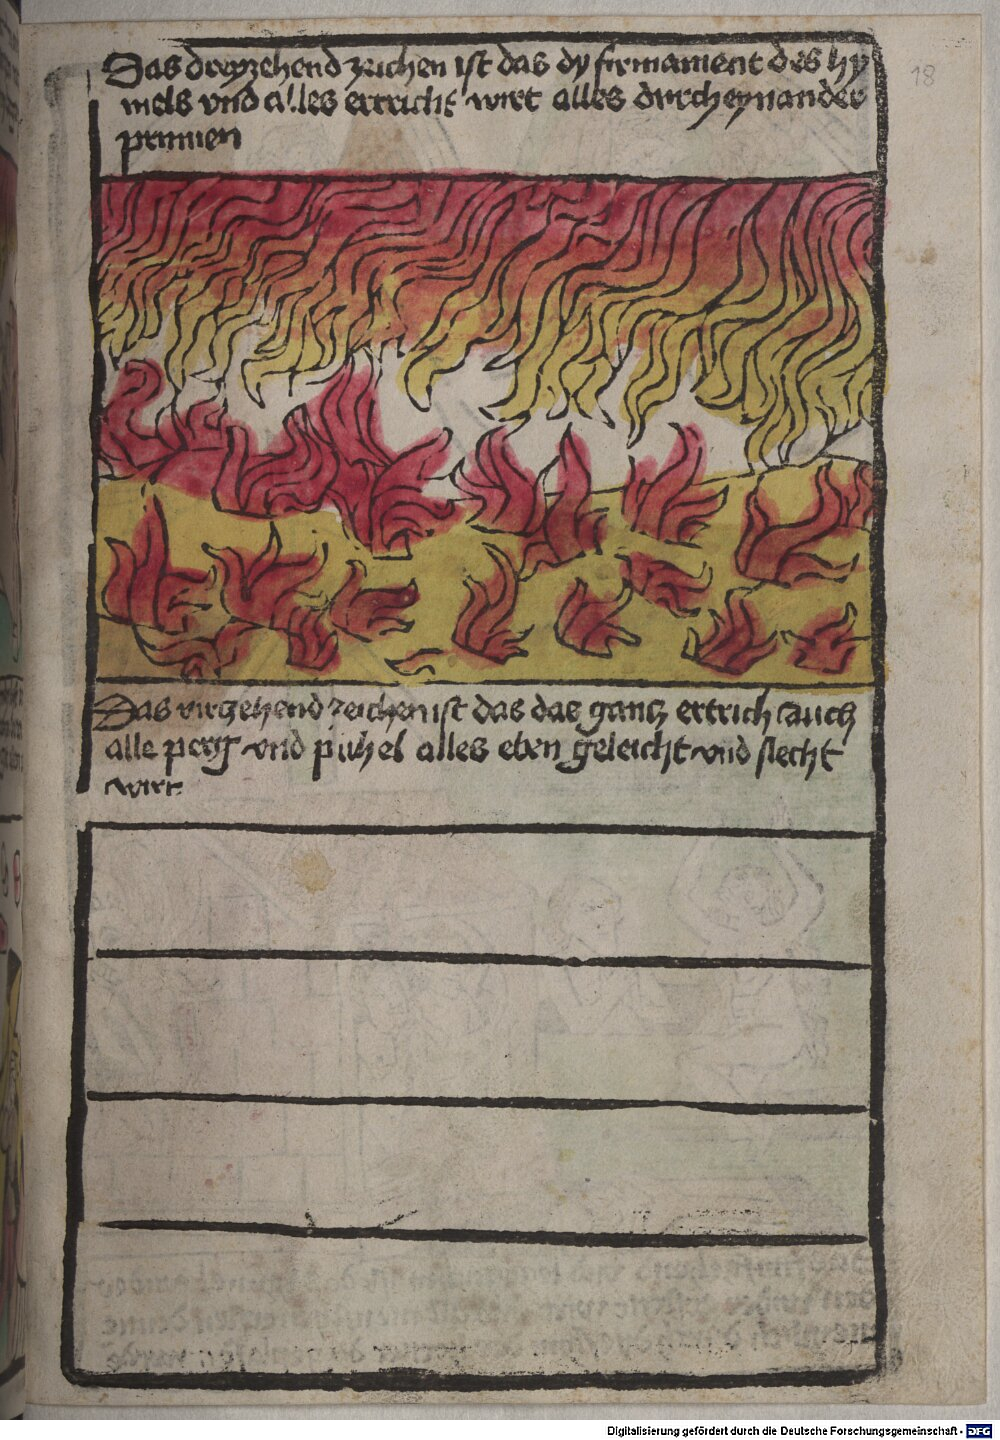 Das dreyzehend zeichen ist das dy firmament des hy
mels vnd alles ertricht wirt alles durcheynander
prinnen
18
Das virzehend zeichen ist das das gantz ertrich auch
alle perg vnd puhel alles eben geleicht vnd slecht
wirt
Digitalisierung gefördert durch die Deutsche Forschungsgemeinschaft - DFG